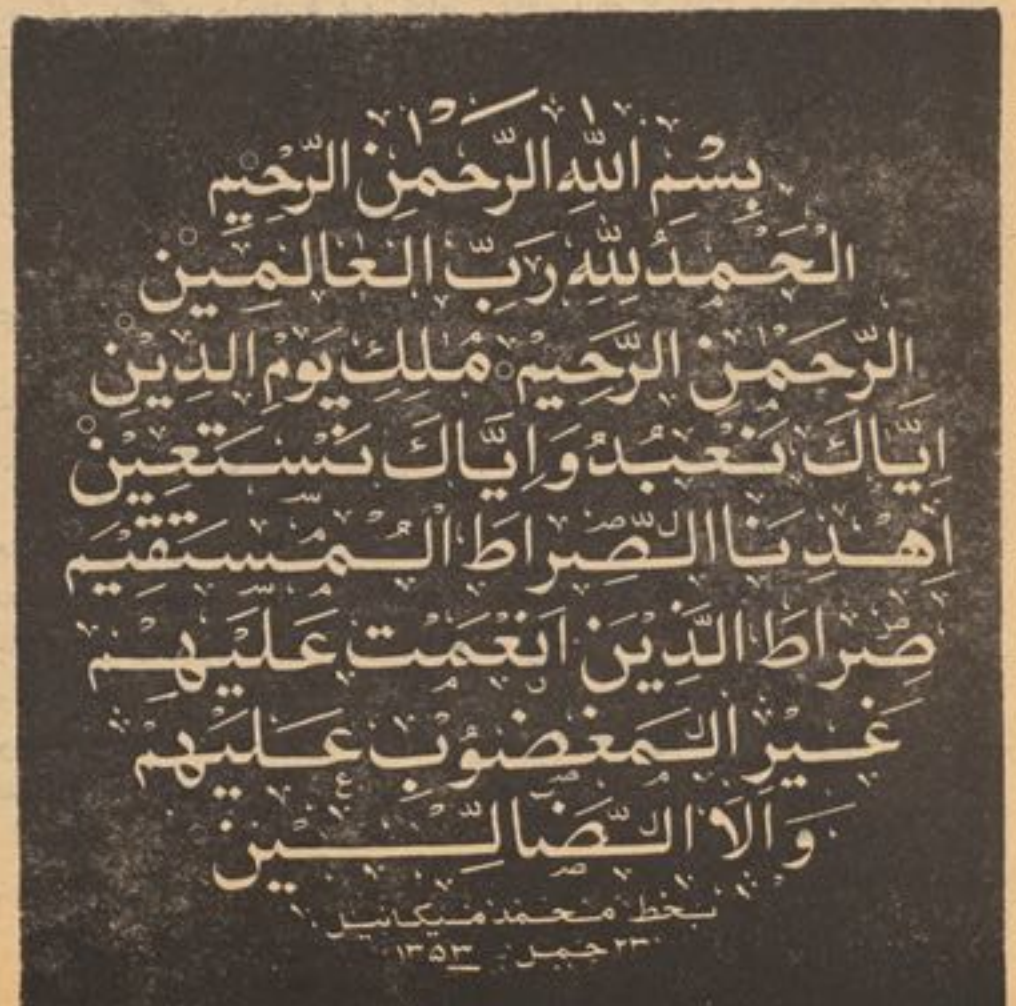 بِسْمِ اللّٰهِ الرَّحْمٰنِ الرَّحِيْمِ
اَلْحَمْدُ لِلّٰهِ رَبِّ الْعَالَمِيْنَ
الرَّحْمٰنِ الرَّحِيْمِ مٰلِكِ يَوْمِ الدِّيْنِ
اِيَّاكَ نَعْبُدُ وَاِيَّاكَ نَسْتَعِيْنُ
اِهْدِنَا الصِّرَاطَ الْمُسْتَقِيْمَ
صِرَاطَ الَّذِيْنَ اَنْعَمْتَ عَلَيْهِمْ
غَيْرِ الْمَغْضُوْبِ عَلَيْهِمْ
وَالَا الضَّالِّيْنَ
بخط محمد میکائیل
۲۳ جمل ۱۳۵۳